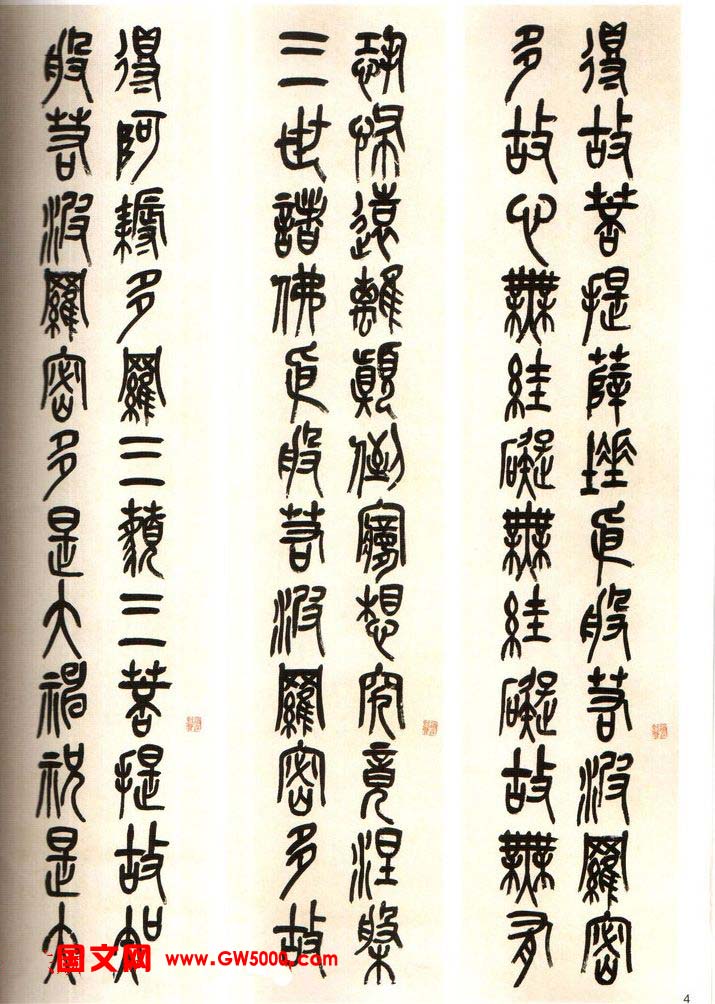 得故菩提薩埵依般若波羅密
多故心無絓礙無絓礙故無有
恐怖遠離顛倒夢想究竟涅槃
三世諸佛依般若波羅密多故
得阿耨多羅三藐三菩提故知
般若波羅密多是大神祝是大
圖文网 www.GW5000.com
4